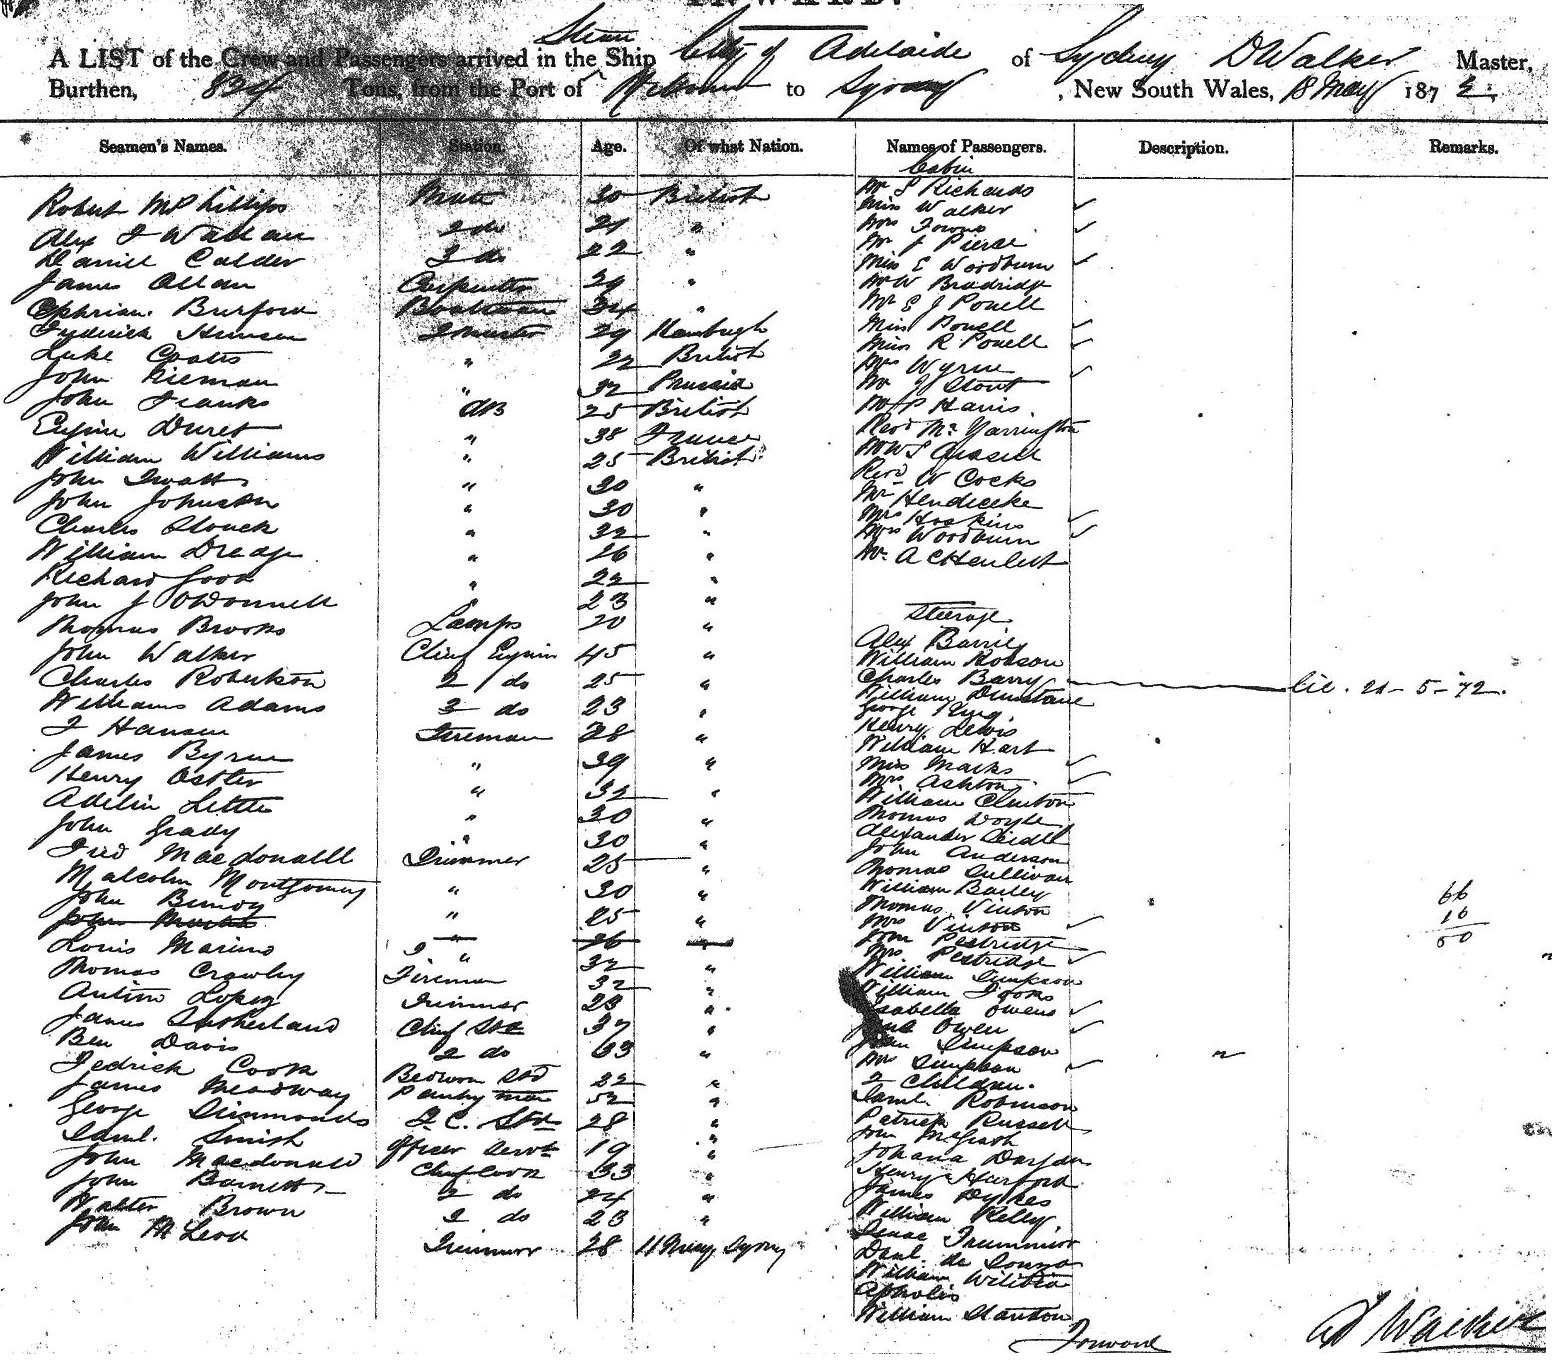 A LIST of the Crew and Passengers arrived in the Ship Steam City of Adelaide of Sydney D Walker Master,
Burthen, 834 Tons, from the Port of Melbourne to Sydney, New South Wales, 18 May 1872
Seamen's Names. Station. Age. Of what Nation. Names of Passengers. Description. Remarks.
Cabin
Robert McPhillips Mate 30 British
Alex J 2 do 21 "
Daniel Calder 3 do 22 "
James Allan Carpenter 29 "
Burford Boatswain 34 "
Frederick Hansen 29 Hamburgh
Luke Coates " 22 British
John Rieman " 32 Prussia
John Franks AB 25 British
Eugine Duret " 38 France
William Williams " 25 British
John " 30 "
John Johnston " 30 "
Charles " 32 "
William Dredge " 26 "
Richard Good " 22 "
John J O'Donnell " 23 "
Thomas Brooks Lamps 20 "
John Walker Chief Engin 45 "
Charles Robertson 2 do 25 "
William Adams 3 do 23 "
J Hansen Fireman 28 "
James Byrne " 39 "
Henry Ostler " 32 "
Adelin Little " 30 "
John Grady " 30 "
Fred Macdonalld Trimmer 25 "
Malcolm Montgomery " 30 "
John " 25 "
John " 26 "
Louis Marino " 32 "
Thomas Crawley Fireman 32 "
Lopez Trimmer 23 "
James Sutherland Chief Std 37 "
Ben Davis 2 do 33 "
Fedrick Cook Bedroom Std 22 "
James Meadway Pantry man 52 "
George Simmonds S. C. Stds 28 "
Saml. Smith Officer Servt 19 "
John Macdonald Chief Cook 33 "
John Barnett 2 do 24 "
Walter Brown 3 do 23 "
John McLeod Trimmer 28 11 May Sydney
Mr S Richards
Miss Walker
Mrs Towns
Mr J Pierce
Miss E Woodburn
Mr W Bradridge
Mr E J Powell
Miss Powell
Miss R Powell
Mrs Wynne
Mr J Stout
Mr P Harris
Revd Mr Yarrington
Mr W J
Revd W Cocks
Mr Hendicke
Mrs Hoskins
Mrs Woodburn
Mr A C Henlest
Steerage
Alex Barrie
William Robson
Charles Barry
William Dunstane
George King
Henry Lewis
William Hart
Miss Marks
Mrs Ashton
William Clinton
Thomas Doyle
Alexander Liddell
John Anderson
Thomas Sullivan
William Bailey
Thomas Vinton
Mrs Vinton
John Pestridge
Mrs. Pestridge
William Simpson
William Fooks
Isabella Owens
Jane Owen
John Simpson
Mrs Simpson
2 Children.
Saml. Robinson
Patrick Russell
John McGrath
Johana
Henry Harford
James Dykes
William Kelly
Isaac
Danl. de Souza
William
William Stanton
Forward
21-5-72.
66
16
50
D Walker